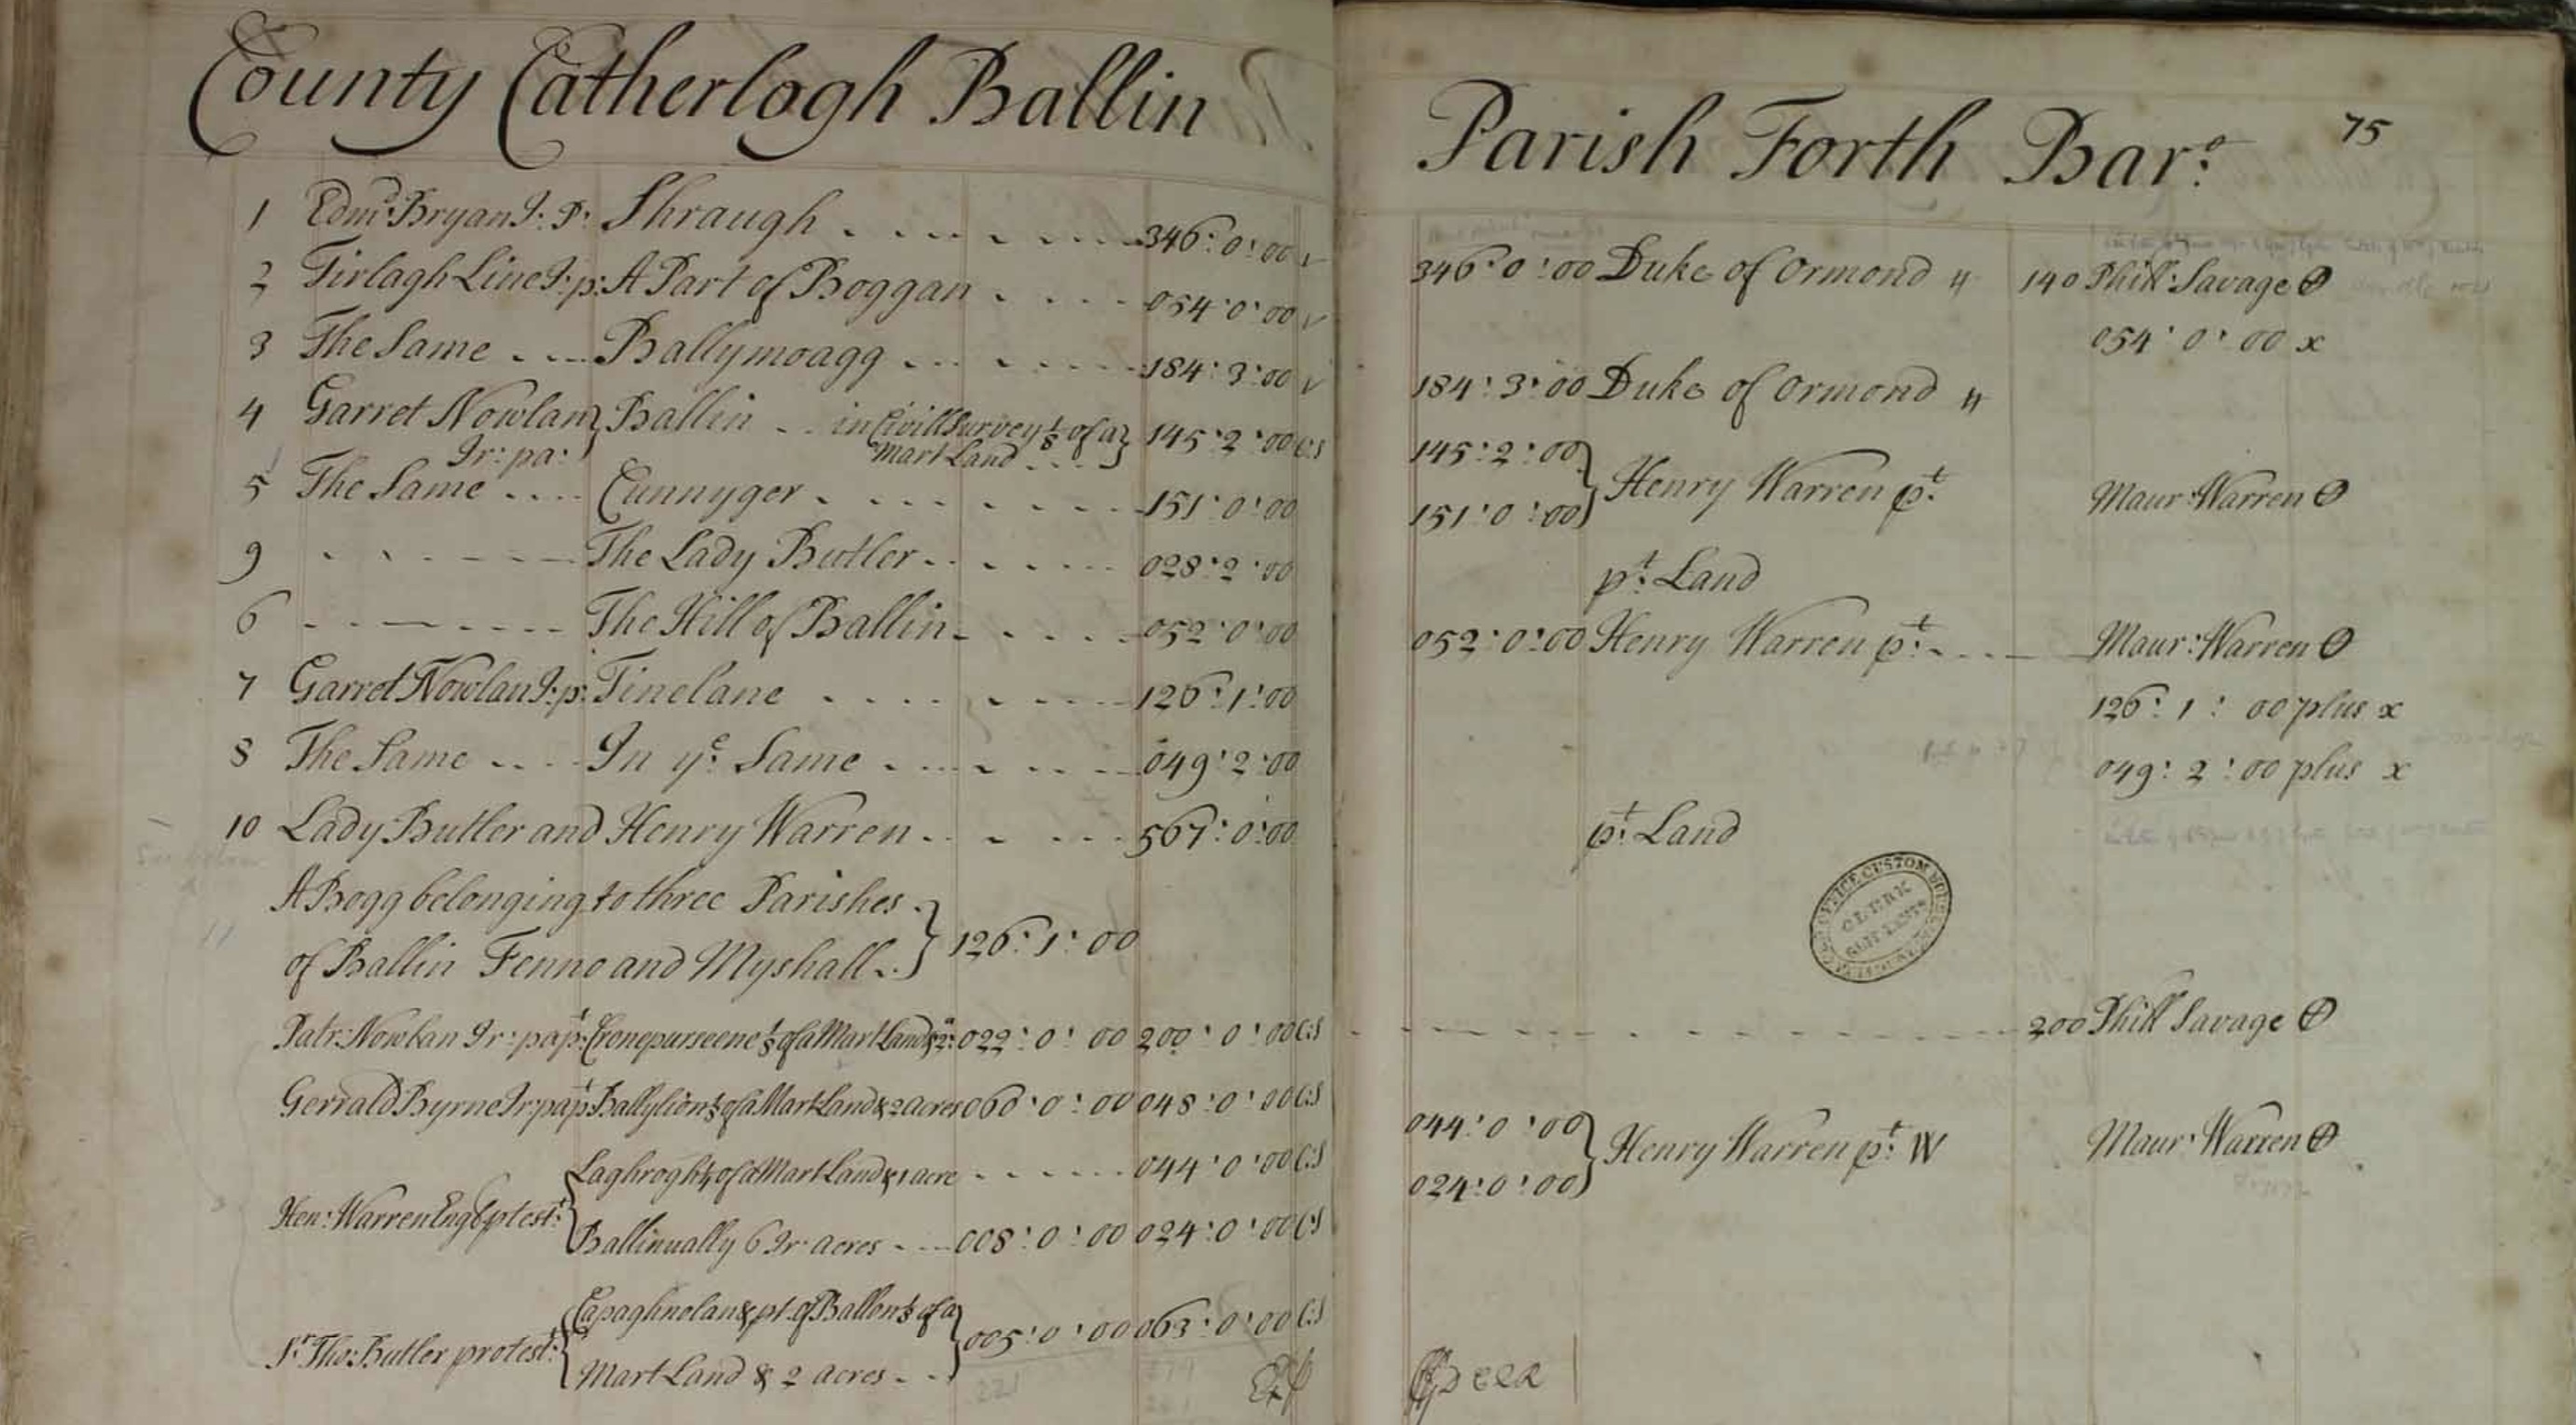 County Catherlogh Ballin
1 Edmd: Bryan I: P: Shraugh 346: 0: 00
2 Tirlagh Line I: p: A Part of Boggan 054: 0: 00
3 The Same Ballymoagg 184: 3: 00
4 Garret Nowlan Ir: pa: Ballin in Civill Survey 1/8 of a Mart Land 145: 2: 00 C:S
5 The Same Cunnyger 151: 0: 00
9 The Lady Butler 028: 2: 00
6 The Hill of Ballin 052: 0: 00
7 Garret Nowlan I: p: Tinelane 126: 1: 00
8 The Same In ye: Same 049: 2: 00
10 Lady Butler and Henry Warren 567: 0: 00
A Bogg belonging to three Parishes
of Ballin Fenno and Myshall 126: 1: 00
Patr: Nowlan Ir: pap: Cronepurseene 1/8 of a Mart Land 022: 0: 00 200: 0: 00 C:S
Gerrald Byrne Ir: pap: of a Mart Land & 2 acres 060: 0: 00 048: 0: 00 C:S
Laghrogh 1/4 of a Mart Land & 1 acre 044: 0: 00 C:S
Hen: Warren Eng: ptest:
Ballinually 6 Ir: acres 008: 0: 00 024: 0: 00 C:S
Capaghnolan & pt. of Ballon 1/8 of a
Sr. Tho: Butler protest: 005: 0: 00 063: 0: 00 C:S
Mart Land & 2 acres
Parish Forth Baro: 75
346: 0: 00 Duke of Ormond " 140 Phill: Savage
054: 0: 00 x
184: 3: 00 Duke of Ormond "
145: 2: 00
Henry Warren pt: Maur: Warren
151: 0: 00
pt: Land
052: 0: 00 Henry Warren pt: Maur: Warren
126: 1: 00 plus x
049: 2: 00 plus x
pt: Land
OFFICE CUSTOM
CLERK
QUIT RENTS
200 Phill Savage
044: 0: 00
Henry Warren pt: W Maur: Warren
024: 0: 00